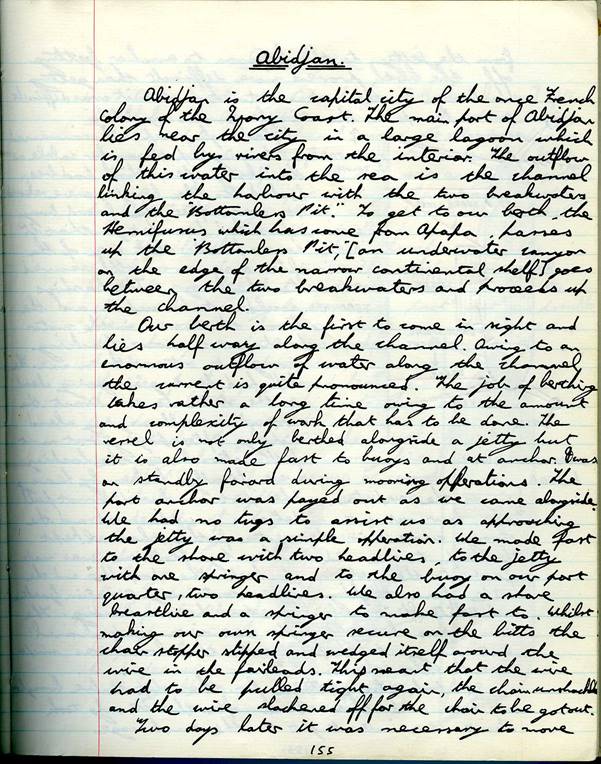 Abidjan.
Abidjan is the capital city of the once French
Colony of the Ivory Coast. The main port of Abidjan
lies near the city in a large lagoon which
is fed by rivers from the interior. The outflow
of this water into the sea is the channel
linking the harbour with the two breakwaters
and the "Bottomless Pit". To get to our berth, the
Hemifusus which has come from Apapa, passes
up the "Bottomless Pit", [an underwater canyon
on the edge of the narrow continental shelf] goes
between the two breakwaters and proceeds up
the channel.
Our berth is the first to come in sight and
lies half way along the channel. Owing to an
enormous outflow of water along the channel
the current is quite pronounced. The job of berthing
takes rather a long time owing to the amount
and complexity of work that has to be done. The
vessel is not only berthed alongside a jetty but
it is also made fast to buoys and at anchor. I was
on standby forard during mooring operations. The
port anchor was payed out as we came alongside.
We had no tugs to assist us as approaching
the jetty was a simple operation. We made fast
to the shore with two headlines, to the jetty
with one springer and to the buoy on our port
quarter, two headlines. We also had a shore
breastline and a springer to make fast to. Whilst
making our own springer secure on the bitts the
chain stopper slipped and wedged itself around the
wire in the fairleads. This meant that the wire
had to be pulled tight again, the chain unshackled
and the wire slackened off for the chain to be got out.
Two days later it was necessary to move
155